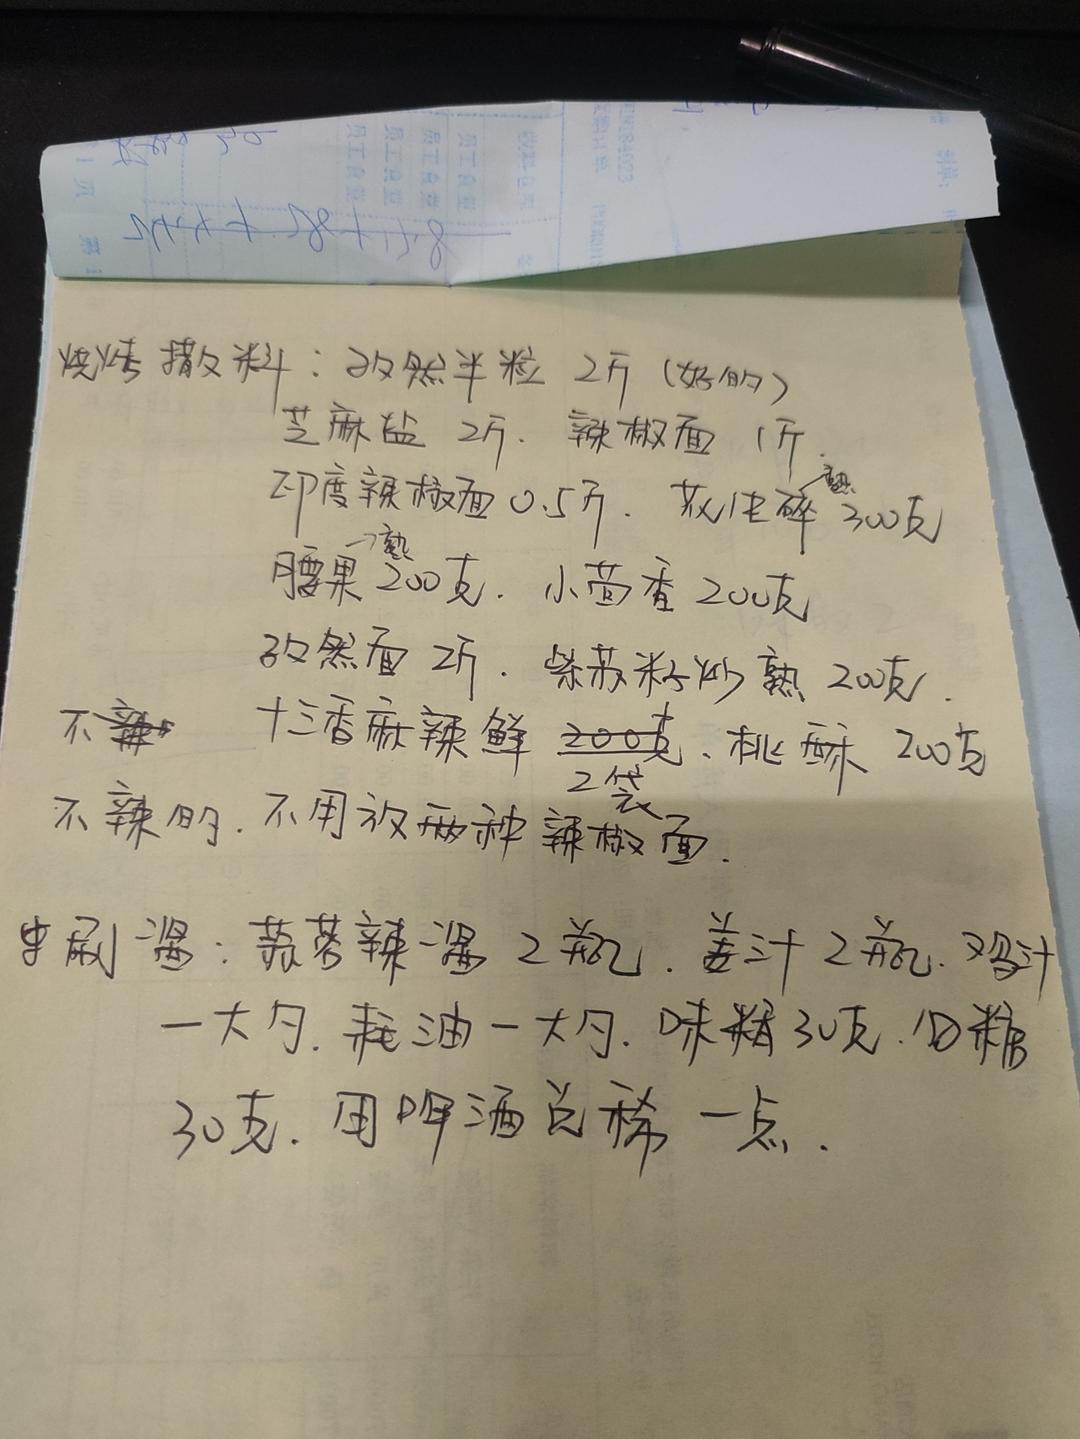 员工食堂
员工食堂
员工食堂
员工食堂
烧烤撒料：孜然半粒 2斤（好的）
芝麻盐 2斤. 辣椒面 1斤.
印度辣椒面0.5斤. 花生碎→熟 300克
腰果→熟 200克. 小茴香 200克
孜然面 2斤. 紫苏籽炒熟 200克.
不辣 十三香麻辣鲜 200克 2袋、桃酥 200克
不辣的. 不用放两种辣椒面.
串刷酱：蒜蓉辣酱 2瓶. 姜汁 2瓶. 鸡汁
一大勺. 耗油一大勺. 味精30克. 白糖
30克. 用啤酒兑稀一点.